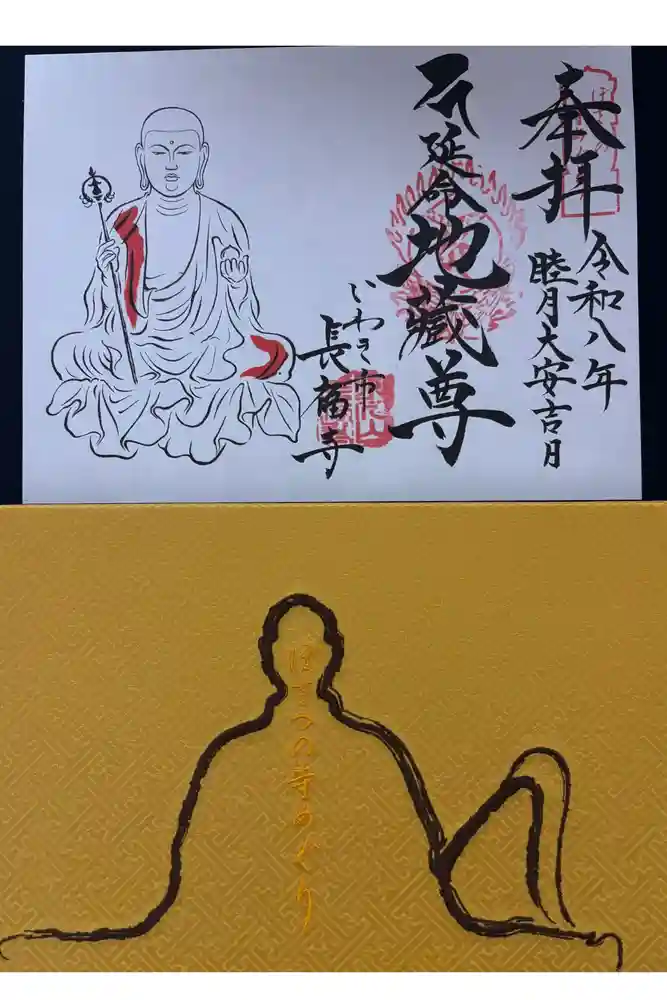 奉拝
令和八年
睦月大安吉日
延命
地蔵尊
いわき市
長福寺
ほとけの寺めぐり